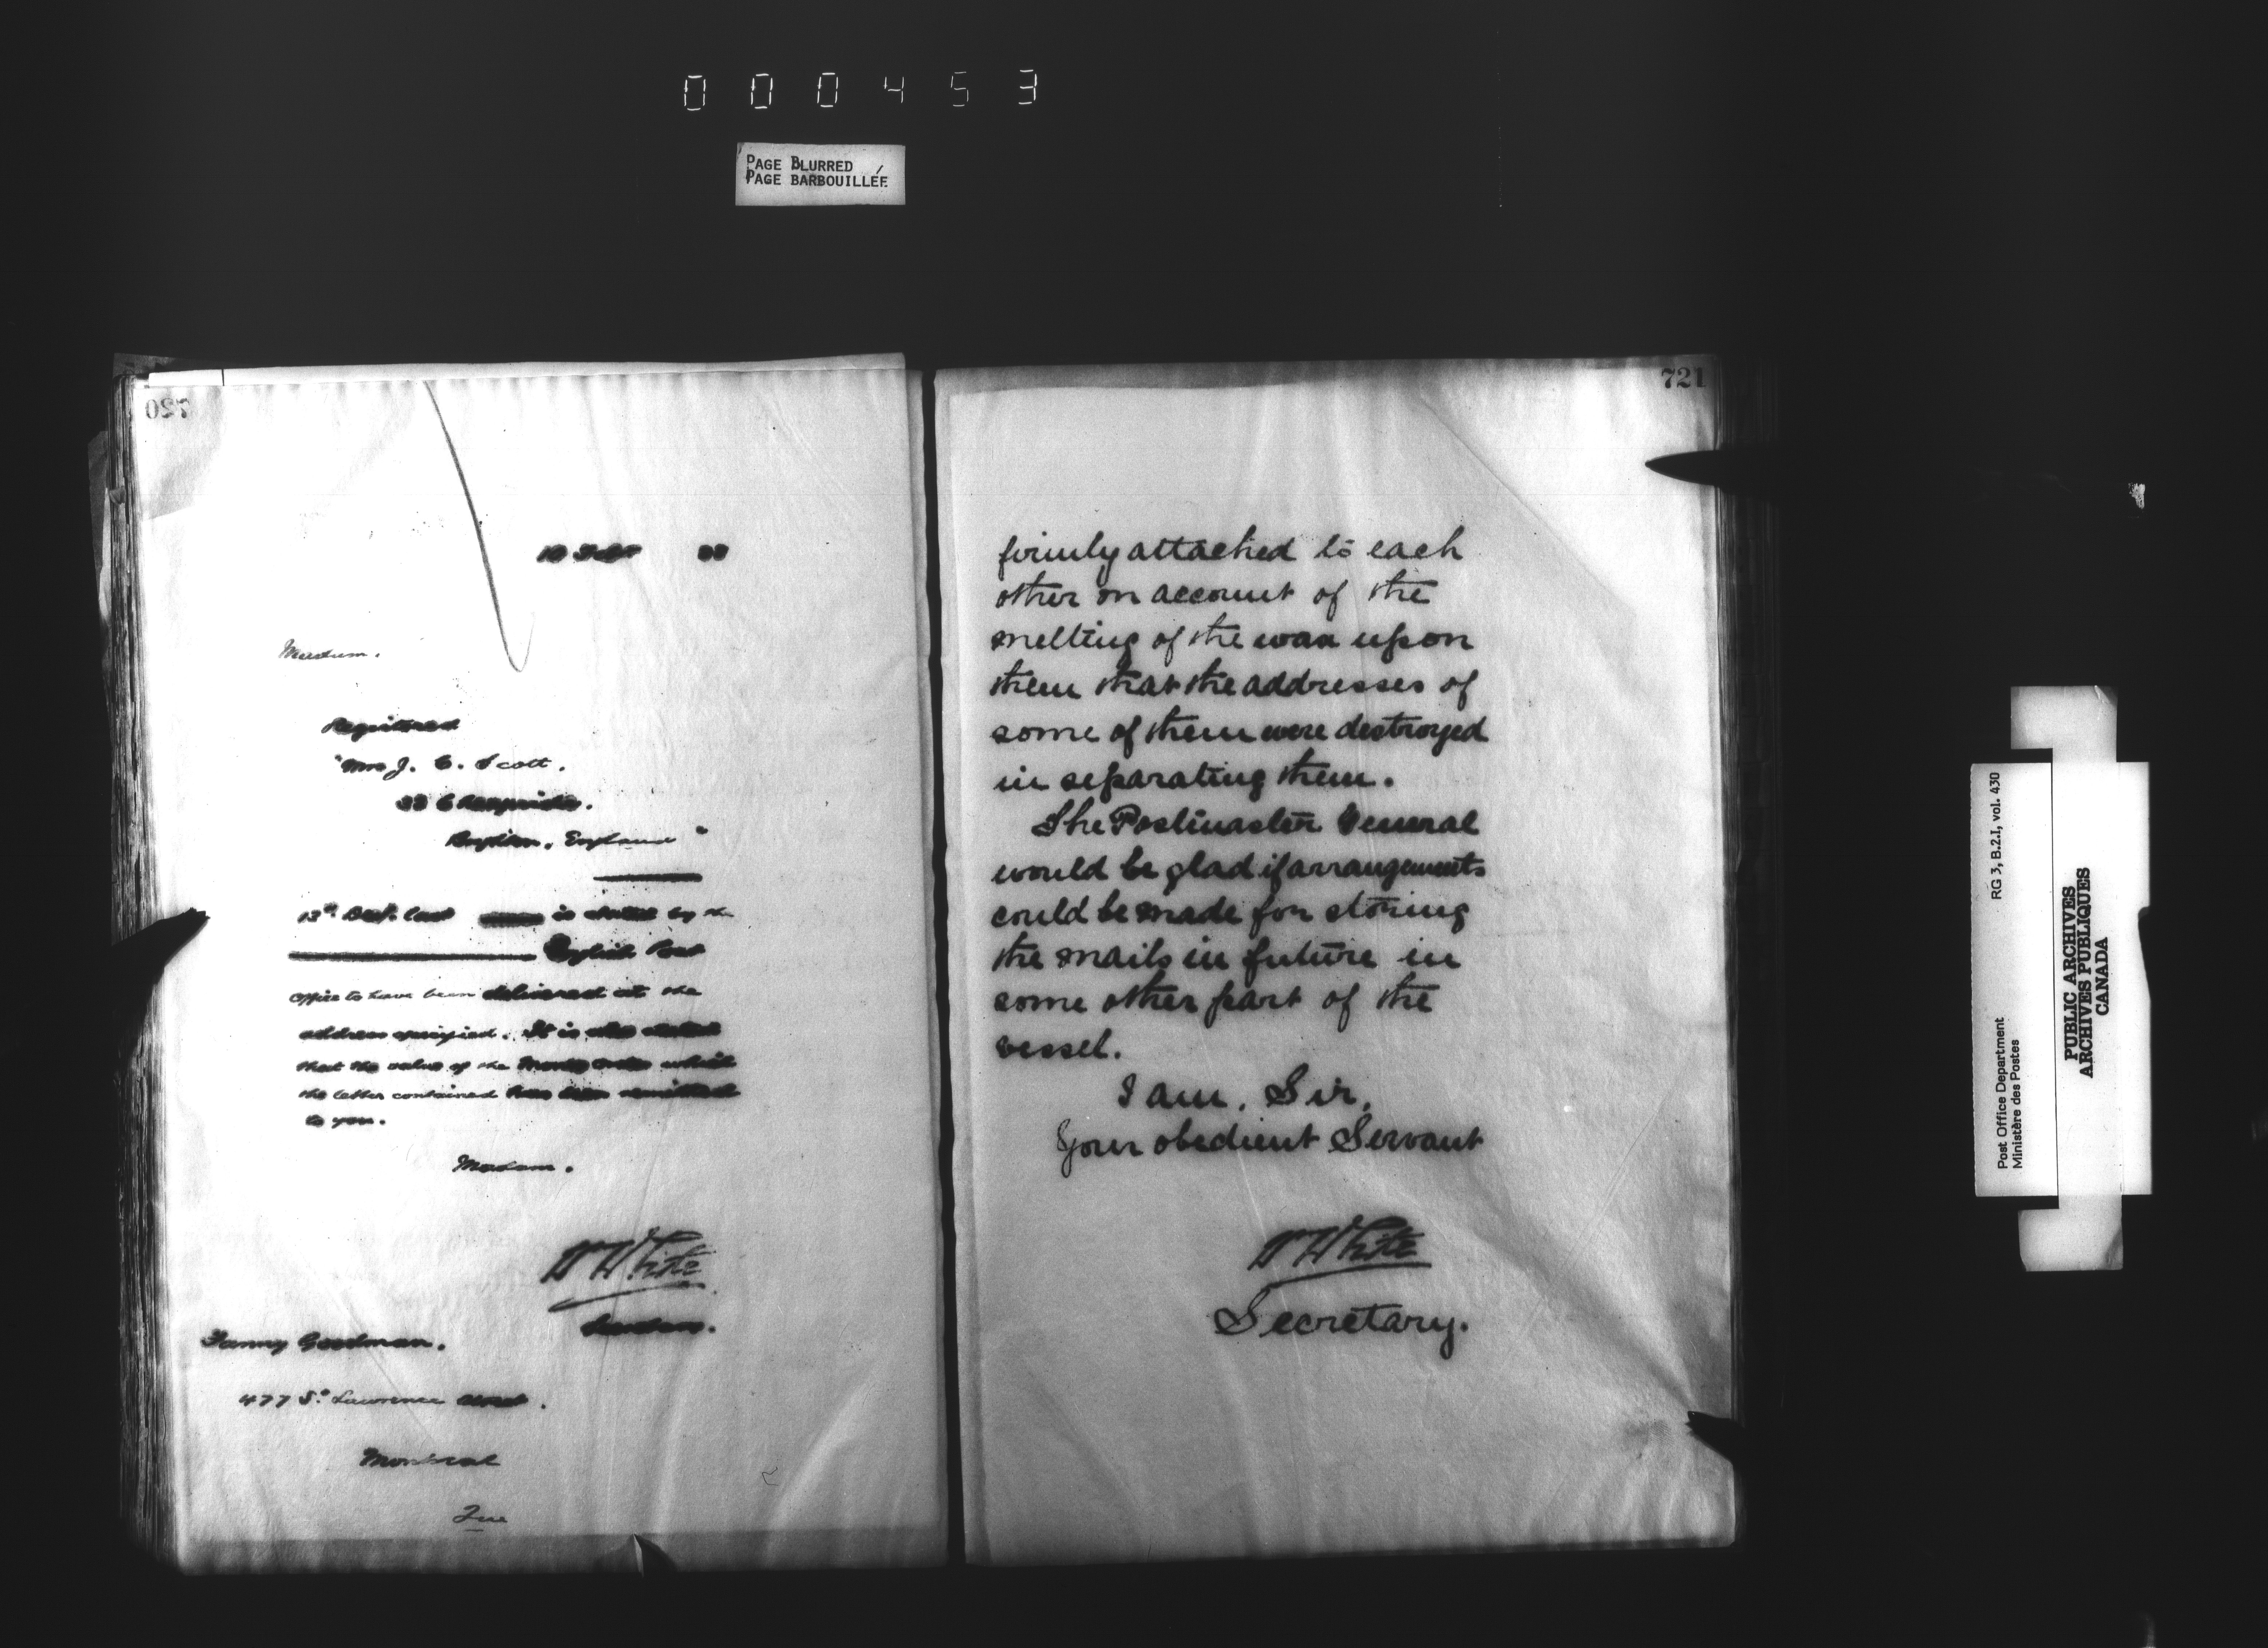 000453
PAGE BLURRED
PAGE BARBOUILLÉE
720
Madam.
Registered
"Mrs J. C. Scott.
England"
is stated by the
English Post
office to have been delivered at the
address specified. It is also stated
that the value of the money order which
the letter contained has been remitted
to you.
Madam.
W White
Fanny Goodman.
477 St. Lawrence
Montreal
Que
721
firmly attached to each
other on account of the
melting of the wax upon
them that the addresses of
some of them were destroyed
in separating them.
The Postmaster General
would be glad if arrangements
could be made for storing
the mails in future in
some other part of the
vessel.
I am, Sir,
Your obedient Servant
W White
Secretary.
RG 3, B.2.I, vol. 430
Post Office Department
Ministère des Postes
PUBLIC ARCHIVES
ARCHIVES PUBLIQUES
CANADA